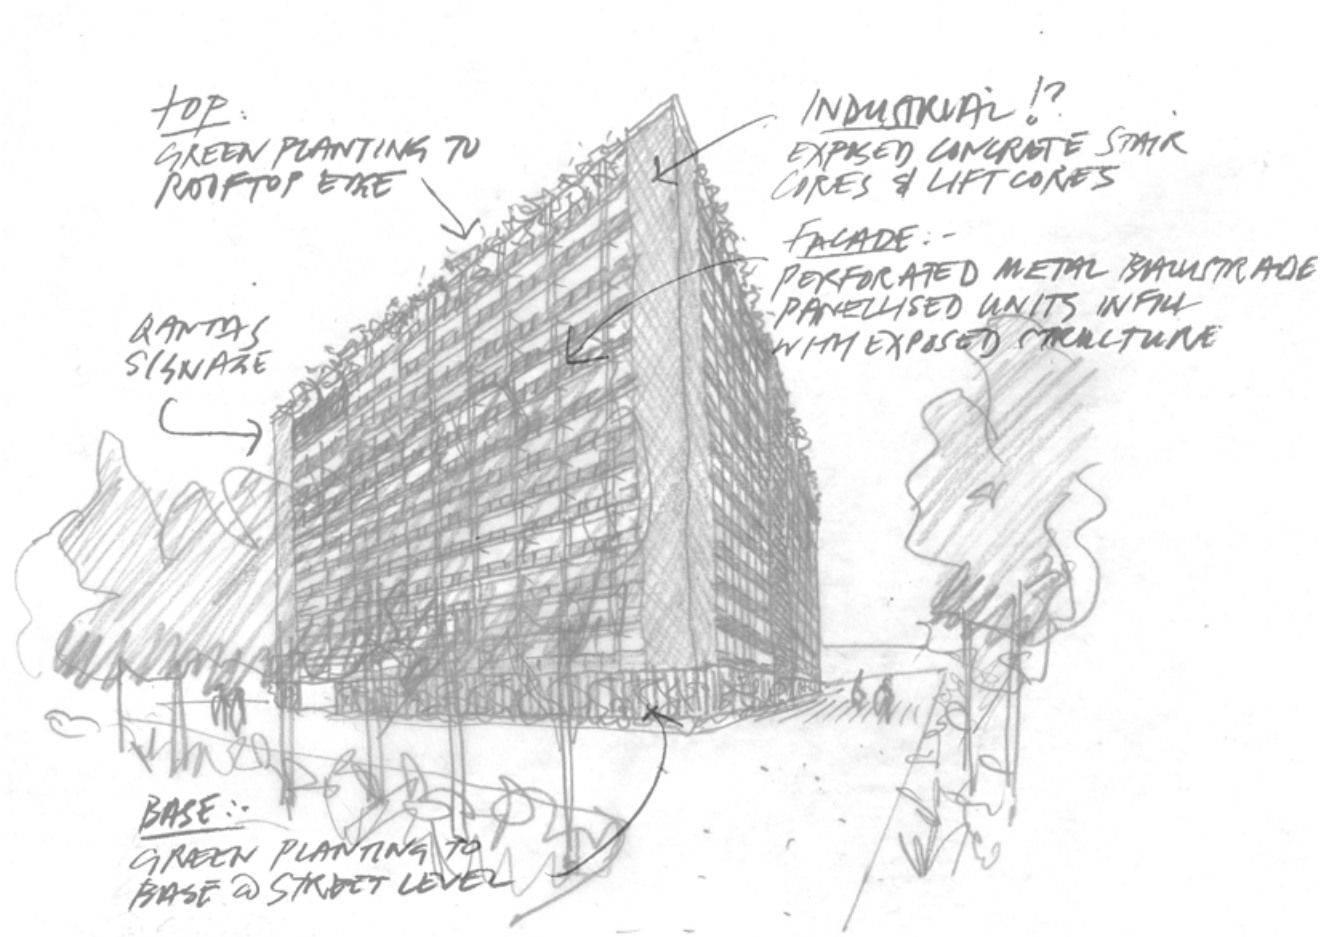 TOP:
GREEN PLANTING TO
ROOFTOP EDGE
INDUSTRIAL !?
EXPOSED CONCRETE STAIR
CORES & LIFT CORES
FACADE:-
PERFORATED METAL BALUSTRADE
PANELLISED UNITS INFILL
WITH EXPOSED STRUCTURE
QANTAS
SIGNAGE
BASE:-
GREEN PLANTING TO
BASE @ STREET LEVEL